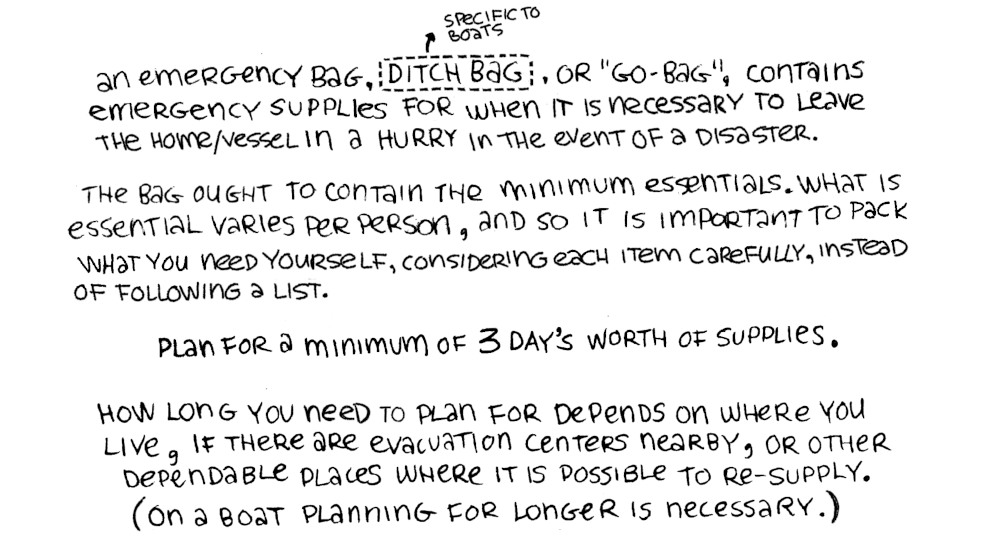 SPECIFIC TO
BOATS
an emergency bag, DITCH BAG, OR "GO-BAG", CONTAINS
emergency SUPPLIES FOR WHEN IT IS necessary TO Leave
THE HOME/VESSEL IN a HURRY IN THE EVENT OF a DISASTER.
THE BAG OUGHT TO CONTAIN THE minimum essentials. WHAT IS
essential varies per person, and so IT IS IMPORTANT TO PACK
WHAT YOU need YOURSELF, CONSIDERING EACH ITEM CAREFULLY, INSTEAD
OF FOLLOWING a LIST.
PLAN FOR a minimum OF 3 DAY'S WORTH OF SUPPLIES.
HOW LONG YOU need TO PLAN FOR DEPENDS ON WHERE YOU
LIVE, IF THERE are evacuation centers nearby, OR OTHER
DEPENDABLE PLACES WHERE IT IS POSSIBLE TO RE-SUPPLY.
(ON a BOAT PLANNING FOR LONGER IS necessary.)